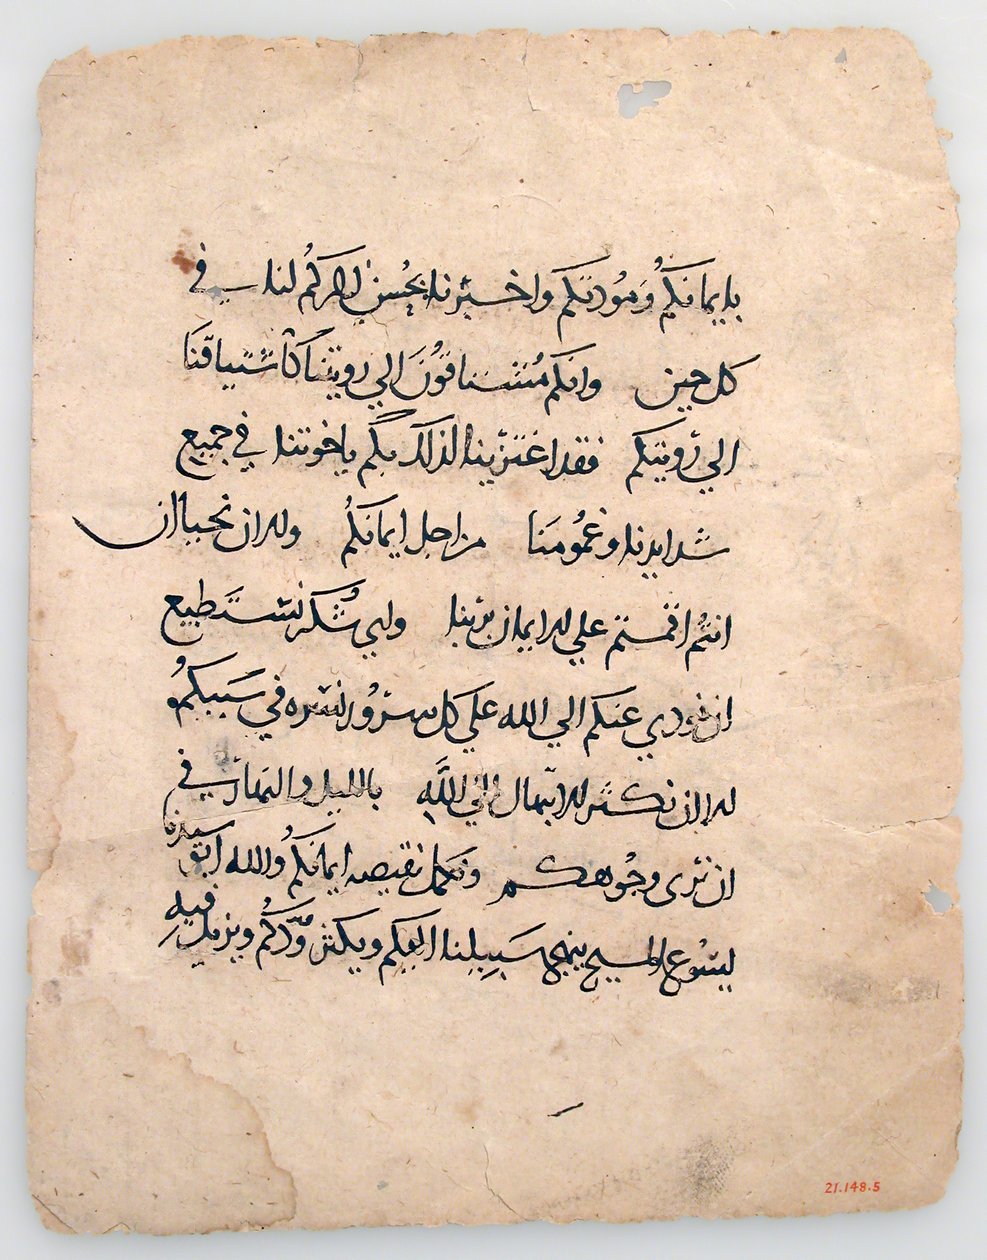 بايمانكم وَمَوُدتكم واخبرنا بحُسن ذكركُم لنا في
كل حين وانكم مُشتاقوُنَ الي رويتنا كاشتياقنا
الي رُويتكم فقد اغتزينا لذلك بكم يا خوتنا في جميع
شدايدنا وغمُومَنا من اجل ايمانكُم والان نحيا ان
انتُم اقمتم علي الايمان بربنا واي شُكر نستطيع
ان نودي عنكم الي الله علي كل سرُور نسره في سَببكُم
الا ان نكثر الابتهال الي اللَّهِ بالليل والنهار في
ان نرى وجُوهكم ونكمل نقيصه ايمانكُم والله ابو سيدنا
يسُوع المسيح ينهج سَبيلنا اليكم ويكثر وُدّكُم ويزيدكم فيهِ
21.148.5